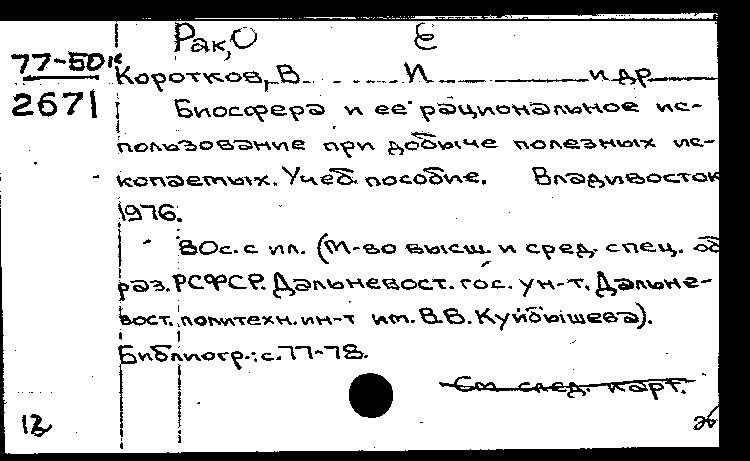 Рак, О Е
77-50к
Коротков, В. И. и др
2671
Биосфера и ее рациональное ис-
пользование при добыче полезных ис-
копаемых. Учеб. пособие. Владивосток
1976.
80с. с ил. (М-во высш. и сред. спец. об
раз. РСФСР. Дальневост. гос. ун-т. Дальне-
вост. политехн. ин-т им. В.В. Куйбышева).
Библиогр.: с. 77-78.
См след. карт.